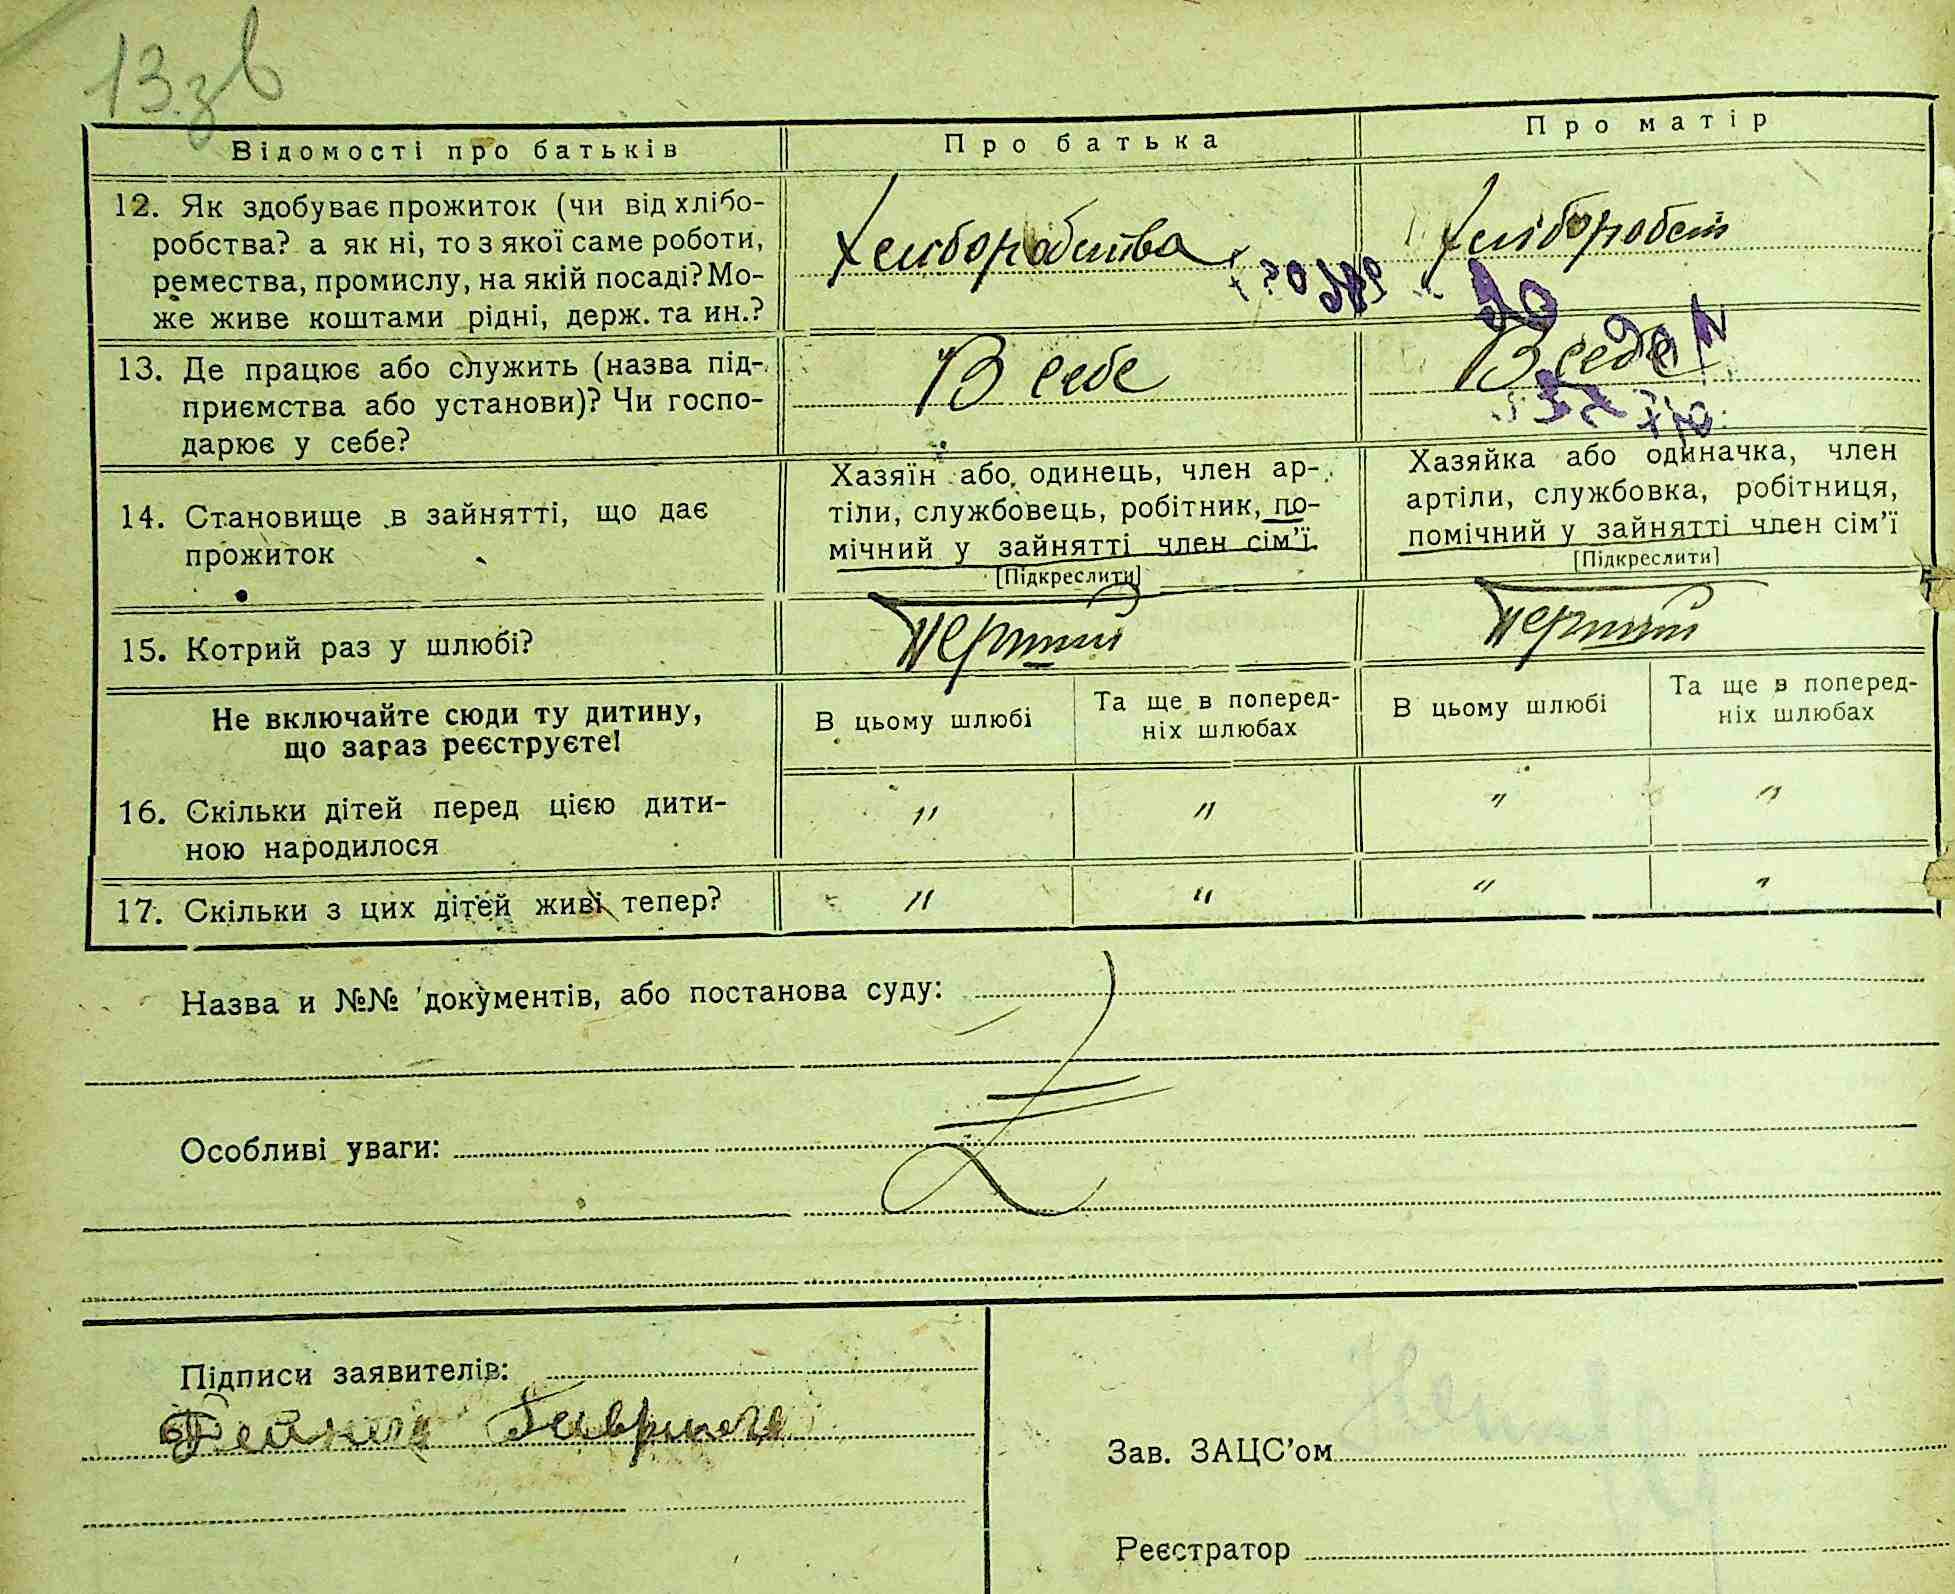 13 зв
Відомості про батьків
Про батька
Про матір
12. Як здобуває прожиток (чи від хлібо-
робства? а як ні, то з якої саме роботи,
ремества, промислу, на якій посаді? Мо-
же живе коштами рідні, держ. та ин.?
Хлиборобства
Хліборобст
13. Де працює або служить (назва під-
приємства або установи)? Чи госпо-
дарює у себе?
В себе
В себе
14. Становище в зайнятті, що дає
прожиток
Хазяїн або одинець, член ар-
тіли, службовець, робітник, по-
мічний у зайнятті член сім'ї.
[Підкреслити]
Хазяйка або одиначка, член
артіли, службовка, робітниця,
помічний у зайнятті член сім'ї
[Підкреслити]
15. Котрий раз у шлюбі?
Перший
Перший
Не включайте сюди ту дитину,
що зараз реєструєте!
В цьому шлюбі
Та ще в поперед-
ніх шлюбах
В цьому шлюбі
Та ще в поперед-
ніх шлюбах
16. Скільки дітей перед цією дити-
ною народилося
" " " "
17. Скільки з цих дітей живі тепер?
" " " "
Назва и №№ документів, або постанова суду:
Особливі уваги:
Підписи заявителів:
Зав. ЗАЦС'ом
Реєстратор